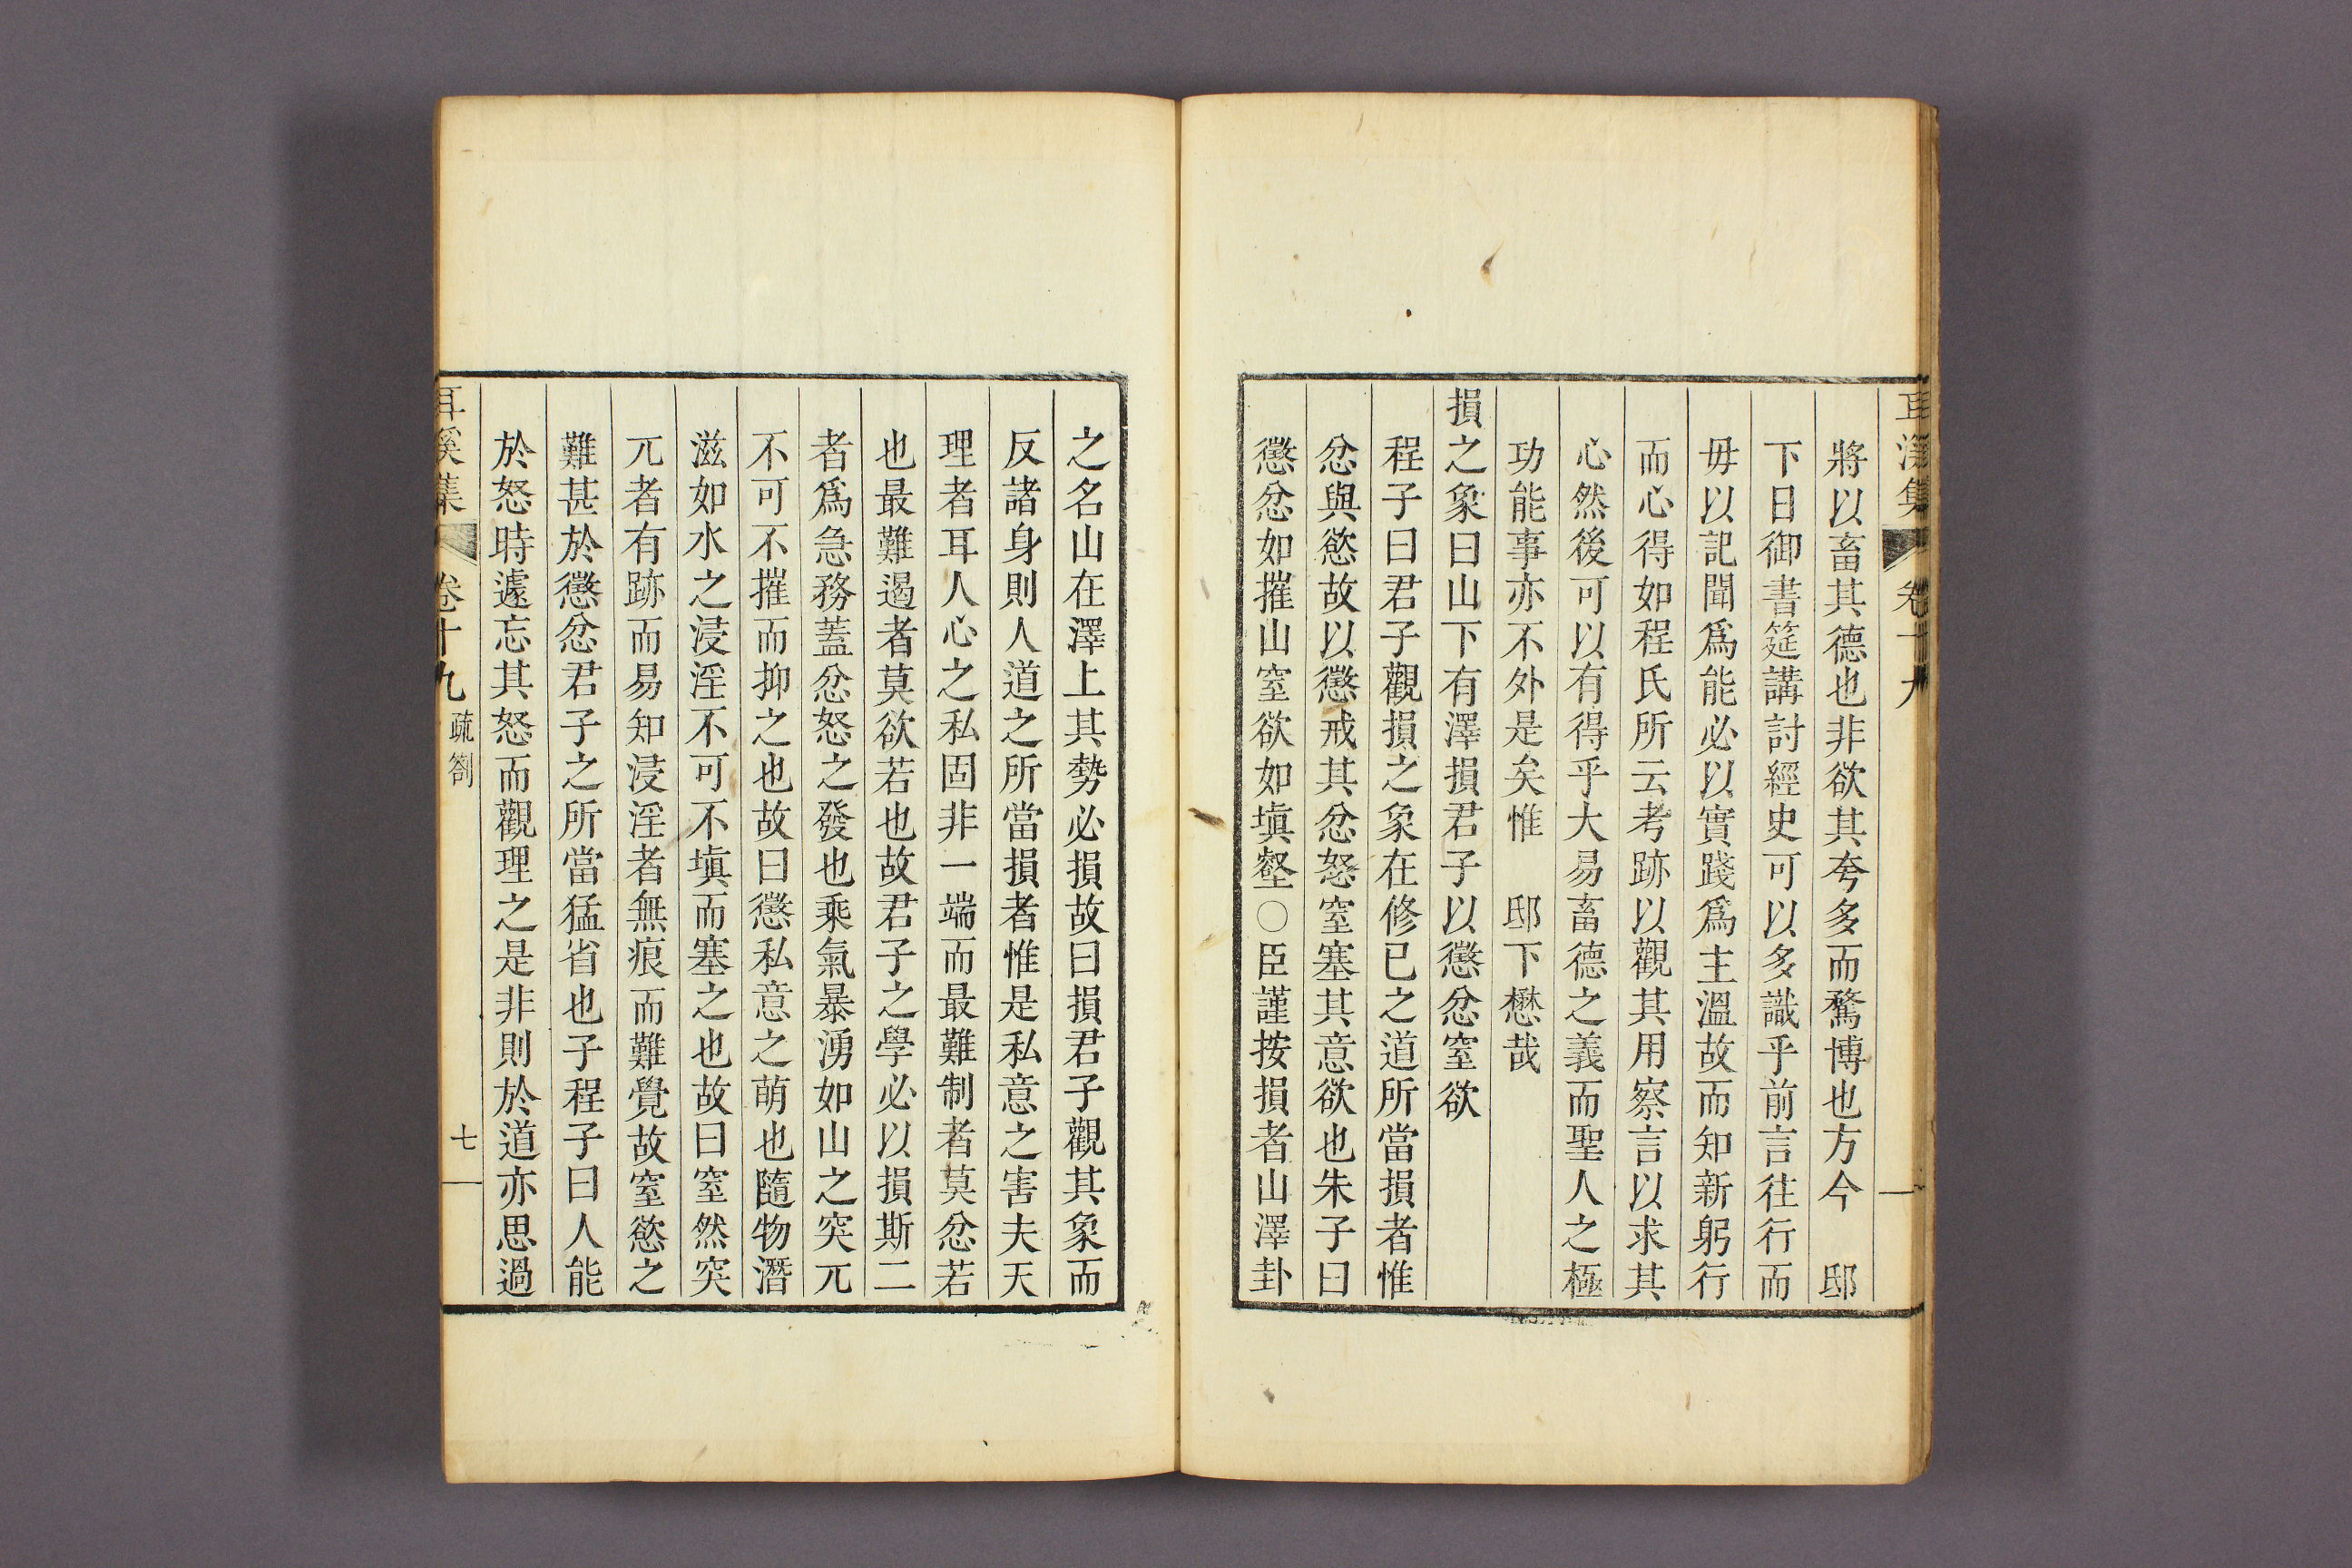 耳溪集 卷十九
將以畜其德也非欲其夸多而騖博也方今　邸
下日御書筵講討經史可以多識乎前言往行而
毋以記聞爲能必以實踐爲主溫故而知新躬行
而心得如程氏所云考跡以觀其用察言以求其
心然後可以有得乎大易畜德之義而聖人之極
功能事亦不外是矣惟　邸下懋哉
損之象曰山下有澤損君子以懲忿窒欲
程子曰君子觀損之象在修已之道所當損者惟
忿與慾故以懲戒其忿怒窒塞其意欲也朱子曰
懲忿如摧山窒欲如塡壑○臣謹按損者山澤卦
之名山在澤上其勢必損故曰損君子觀其象而
反諸身則人道之所當損者惟是私意之害夫天
理者耳人心之私固非一端而最難制者莫忿若
也最難遏者莫欲若也故君子之學必以損斯二
者爲急務蓋忿怒之發也乘氣暴湧如山之突兀
不可不摧而抑之也故曰懲私意之萌也隨物潛
滋如水之浸淫不可不塡而塞之也故曰窒然突
兀者有跡而易知浸淫者無痕而難覺故窒慾之
難甚於懲忿君子之所當猛省也子程子曰人能
於怒時遽忘其怒而觀理之是非則於道亦思過
耳溪集 卷十九 疏箚 七